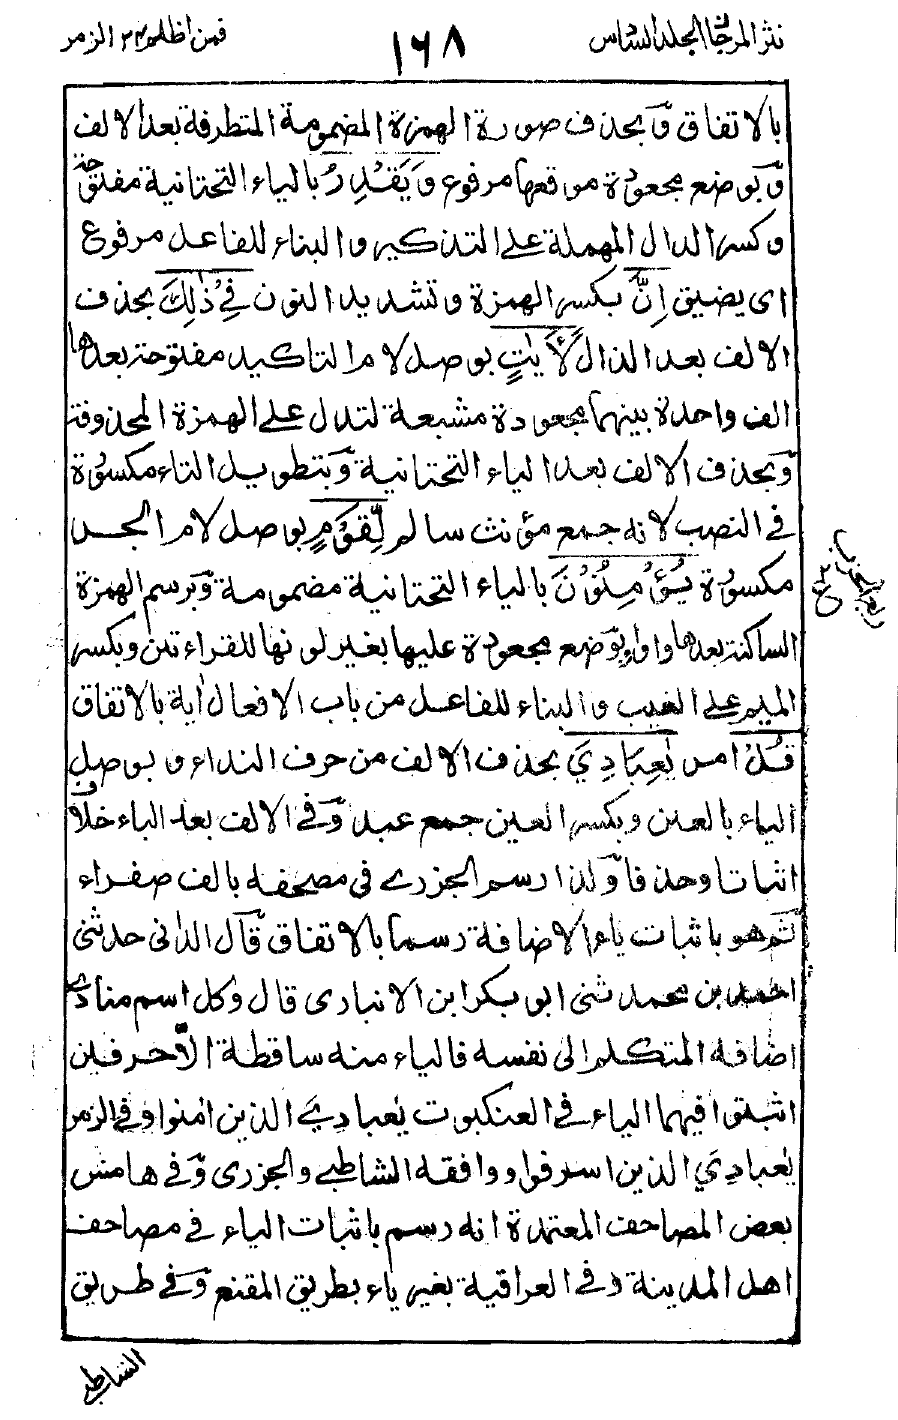 نثر المرجان المجلد السادس
١٦٨
فمن اظلم ٢٤ الزمر
بالاتفاق وبحذف صورة الهمزة المضمومة المتطرفة بعد الالف
وبوضع مجعودة موقعها مرفوع وَيَقْدِرُ بالياء التحتانية مفتوحة
وكسر الدال المهملة على التذكير والبناء للفاعل مرفوع
اى يضيق اِنَّ بكسر الهمزة وتشديد النون فِيْ ذٰلِكَ بحذف
الالف بعد الذال لَاٰيٰتٍ بوصل لام التاكيد مفتوحة بعدها
الف واحدة بينهما مجعودة مشبعة لتدل على الهمزة المحذوفة
وبحذف الالف بعد الياء التحتانية وبتطويل التاء مكسورة
في النصب لانه جمع مؤنث سالم لِّقَوْمٍ بوصل لام الجد
مكسورة يُّؤْمِنُوْنَ بالياء التحتانية مضمومة وبرسم الهمزة
الساكنة بعدها واوا وبوضع مجعودة عليها بغير لونها للقراءتين وبكسر
الميم على الغيب والبناء للفاعل من باب الافعال اٰية بالاتفاق
قُلْ امر يٰعِبَادِيَ بحذف الالف من حرف النداء وبوصل
الياء بالعين وبكسر العين جمع عبد وفي الالف بعد الباء خلاف
اثباتا وحذفا ولذا رسم الجزرى في مصحفه بالف صفراء
ثم هو باثبات ياء الاضافة رسما بالاتفاق قال الدانى حدثنى
احمد بن محمد ثنى ابو بكر ابن الانبارى قال وكل اسم منادى
اضافه المتكلم الى نفسه فالياء منه ساقطة الا حرفين
اثبتوا فيهما الياء في العنكبوت يٰعبادىَ الذين اٰمنوا وفي الزمر
يٰعبادِيَ الذين اسرفوا ووافقه الشاطبى والجزرى وفي هامش
بعض المصاحف المعتمدة انه رسم باثبات الياء في مصاحف
اهل المدينة وفي العراقية بغير ياء بطريق المقنع وفي طريق
ربع الحزب
الشاطبى